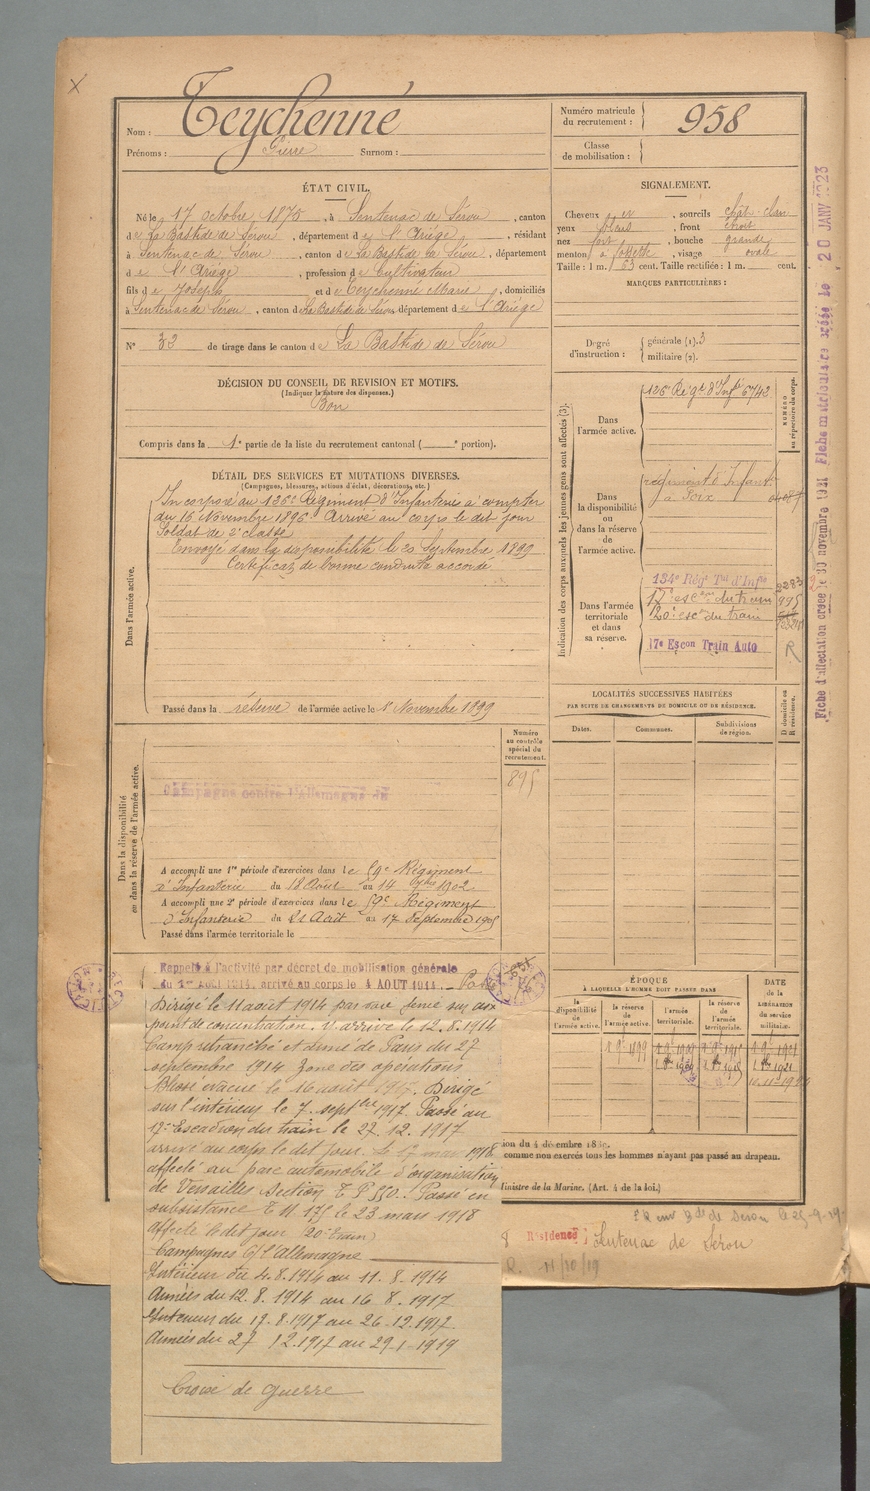 Nom : Teychenné
Prénoms : Pierre Surnom :
Numéro matricule du recrutement : 958
Classe de mobilisation :
ÉTAT CIVIL.
Né le 17 octobre 1875, à Sentenac de Sérou, canton
de La Bastide de Sérou, département de l'Ariège, résidant
à Sentenac de Sérou, canton de La Bastide de Sérou, département
de l'Ariège, profession de Cultivateur
fils de Joseph et de Teychenné Marie, domiciliés
à Sentenac de Sérou, canton de La Bastide de Sérou, département de l'Ariège
N° 32 de tirage dans le canton de La Bastide de Sérou
DÉCISION DU CONSEIL DE REVISION ET MOTIFS.
(Indiquer la nature des dispenses.)
Bon
Compris dans la 1e partie de la liste du recrutement cantonal ( e portion).
SIGNALEMENT.
Cheveux , sourcils chât. clair
yeux , front étroit
nez fort, bouche grande
menton à fossette, visage ovale
Taille : 1 m. 63 cent. Taille rectifiée : 1 m. cent.
MARQUES PARTICULIÈRES :
Degré d'instruction : générale (1). 3
militaire (2).
DÉTAIL DES SERVICES ET MUTATIONS DIVERSES.
(Campagnes, blessures, actions d'éclat, décorations, etc.)
Dans l'armée active.
Incorporé au 126e Régiment d'Infanterie à compter
du 16 Novembre 1896. Arrivé au corps le dit jour
Soldat de 2e classe
Envoyé dans la disponibilité le 20 Septembre 1899
Certificat de bonne conduite accordé
Passé dans la réserve de l'armée active le 1er Novembre 1899
Indication des corps auxquels les jeunes gens sont affectés (3).
NUMÉRO au répertoire du corps.
Dans l'armée active.
126e Régt d'Infie 6742
Dans la disponibilité ou dans la réserve de l'armée active.
régiment d'Infanterie
à Foix
Dans l'armée territoriale et dans sa réserve.
134e Régt Tal d'Infie
17e escon du train 995
20e escon du train
17e Escon Train Auto R
LOCALITÉS SUCCESSIVES HABITÉES
PAR SUITE DE CHANGEMENTS DE DOMICILE OU DE RÉSIDENCE.
Dates. Communes. Subdivisions de région.
D domicile ou R résidence.
Dans la disponibilité ou dans la réserve de l'armée active.
Numéro au contrôle spécial du recrutement.
895
Campagne contre l'Allemagne du
A accompli une 1re période d'exercices dans le 59e Régiment
d'Infanterie du 18 Août au 14 7bre 1902
A accompli une 2e période d'exercices dans le 59e Régiment
d'Infanterie du 21 Août au 17 Septembre 1905
Passé dans l'armée territoriale le
Rappelé à l'activité par décret de mobilisation générale
du 1er Août 1914, arrivé au corps le 4 AOUT 1914.
Dirigé le 11 août 1914 par voie ferrée sur son
point de concentration. Y arrive le 12.8.1914
Camp retranché et armé de Paris du 27
septembre 1914 Zone des opérations
Blessé évacué le 16 août 1917. Dirigé
sur l'intérieur le 7 septbre 1917. Passé au
17e Escadron du train le 27.12.1917
arrivé au corps le dit jour. Le 17 mars 1918
affecté au parc automobile d'organisation
de Versailles Section T P 550. Passé en
subsistance T M 175 le 23 mars 1918
affecté le dit jour (20e train)
Campagnes c/ l'Allemagne
Intérieur du 4.8.1914 au 11.8.1914
Armées du 12.8.1914 au 16.8.1917
Intérieur du 17.8.1917 au 26.12.1917
Armées du 27.12.1917 au 29-1-1919
Croix de guerre
ÉPOQUE
À LAQUELLE L'HOMME DOIT PASSER DANS
la disponibilité de l'armée active. la réserve de l'armée active. l'armée territoriale. la réserve de l'armée territoriale.
DATE de la LIBÉRATION du service militaire.
ion du 4 décembre
comme non exercés tous les hommes n'ayant pas passé au drapeau.
Ministre de la Marine. (Art. 4 de la loi.)
Résidence Sentenac de Sérou
11/10/19
Fiche d'affectation créée le 30 novembre 1921 Fiche matriculaire créée le 20 JANV 1923